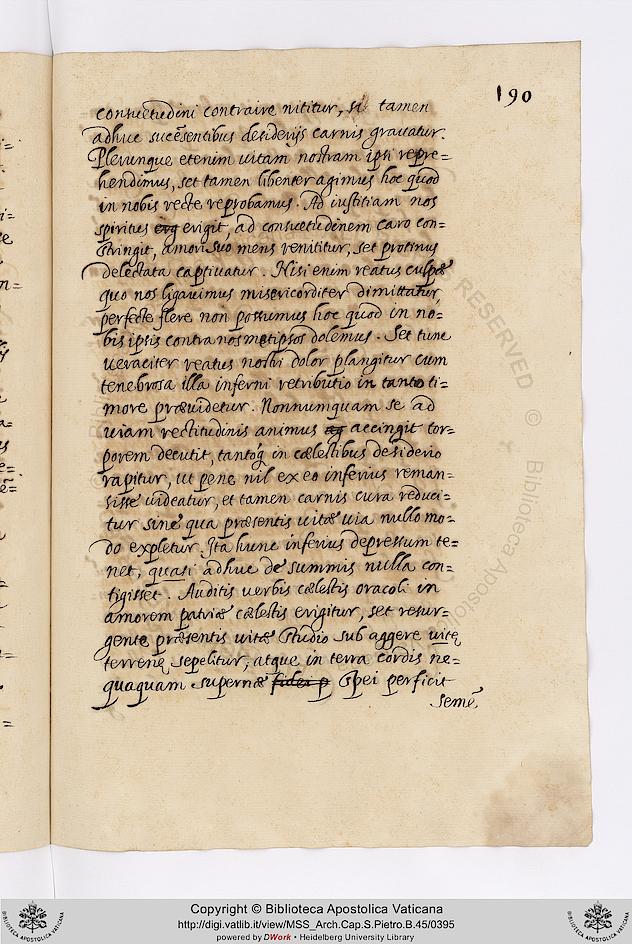 190
consuetudini contraire nititur, si tamen
adhuc sucẽsentibus desiderijs carnis grauatur.
Plerunque etenim uitam nostram ipsi repre=
hendimus, set tamen libenter agimus hoc quod
in nobis recte reprobamus. Ad iustitiam nos
spiritus erigit, ad consuetudinem caro con=
stringit, amori suo mens renititur, set protinus
delectata captiuatur. Nisi enim reatus culpæ
quo nos ligauimus misericorditer dimittatur,
perfecte flere non possumus hoc quod in no=
bis ipsis contra nosmetipsos dolemus. Set tunc
ueraciter reatus nostri dolor plangitur cum
tenebrosa illa inferni retributio in tanto ti=
more præuidetur. Nonnumquam se ad
uiam rectitudinis animus accingit tor=
porem decutit, tantoq in cælestibus desiderio
rapitur, ut pene nil ex eo inferius reman=
sisse uideatur, et tamen carnis cura reduci=
tur sine qua præsentis uitæ uia nullo mo=
do expletur. Ita hunc inferius depressum te=
net, quasi adhuc de summis nulla con=
tigisset. Auditis uerbis cælestis oracoli in
amorem patriæ cælestis erigitur, set resur=
gente præsentis uitæ studio sub aggere uitę
terrenę sepelitur, atque in terra cordis ne=
quaquam supernæ fidei p spei perficit
semẽ,
RESERVED © Biblioteca Aposto
Copyright © Biblioteca Apostolica Vaticana
http://digi.vatlib.it/view/MSS_Arch.Cap.S.Pietro.B.45/0395
powered by DWork • Heidelberg University Library